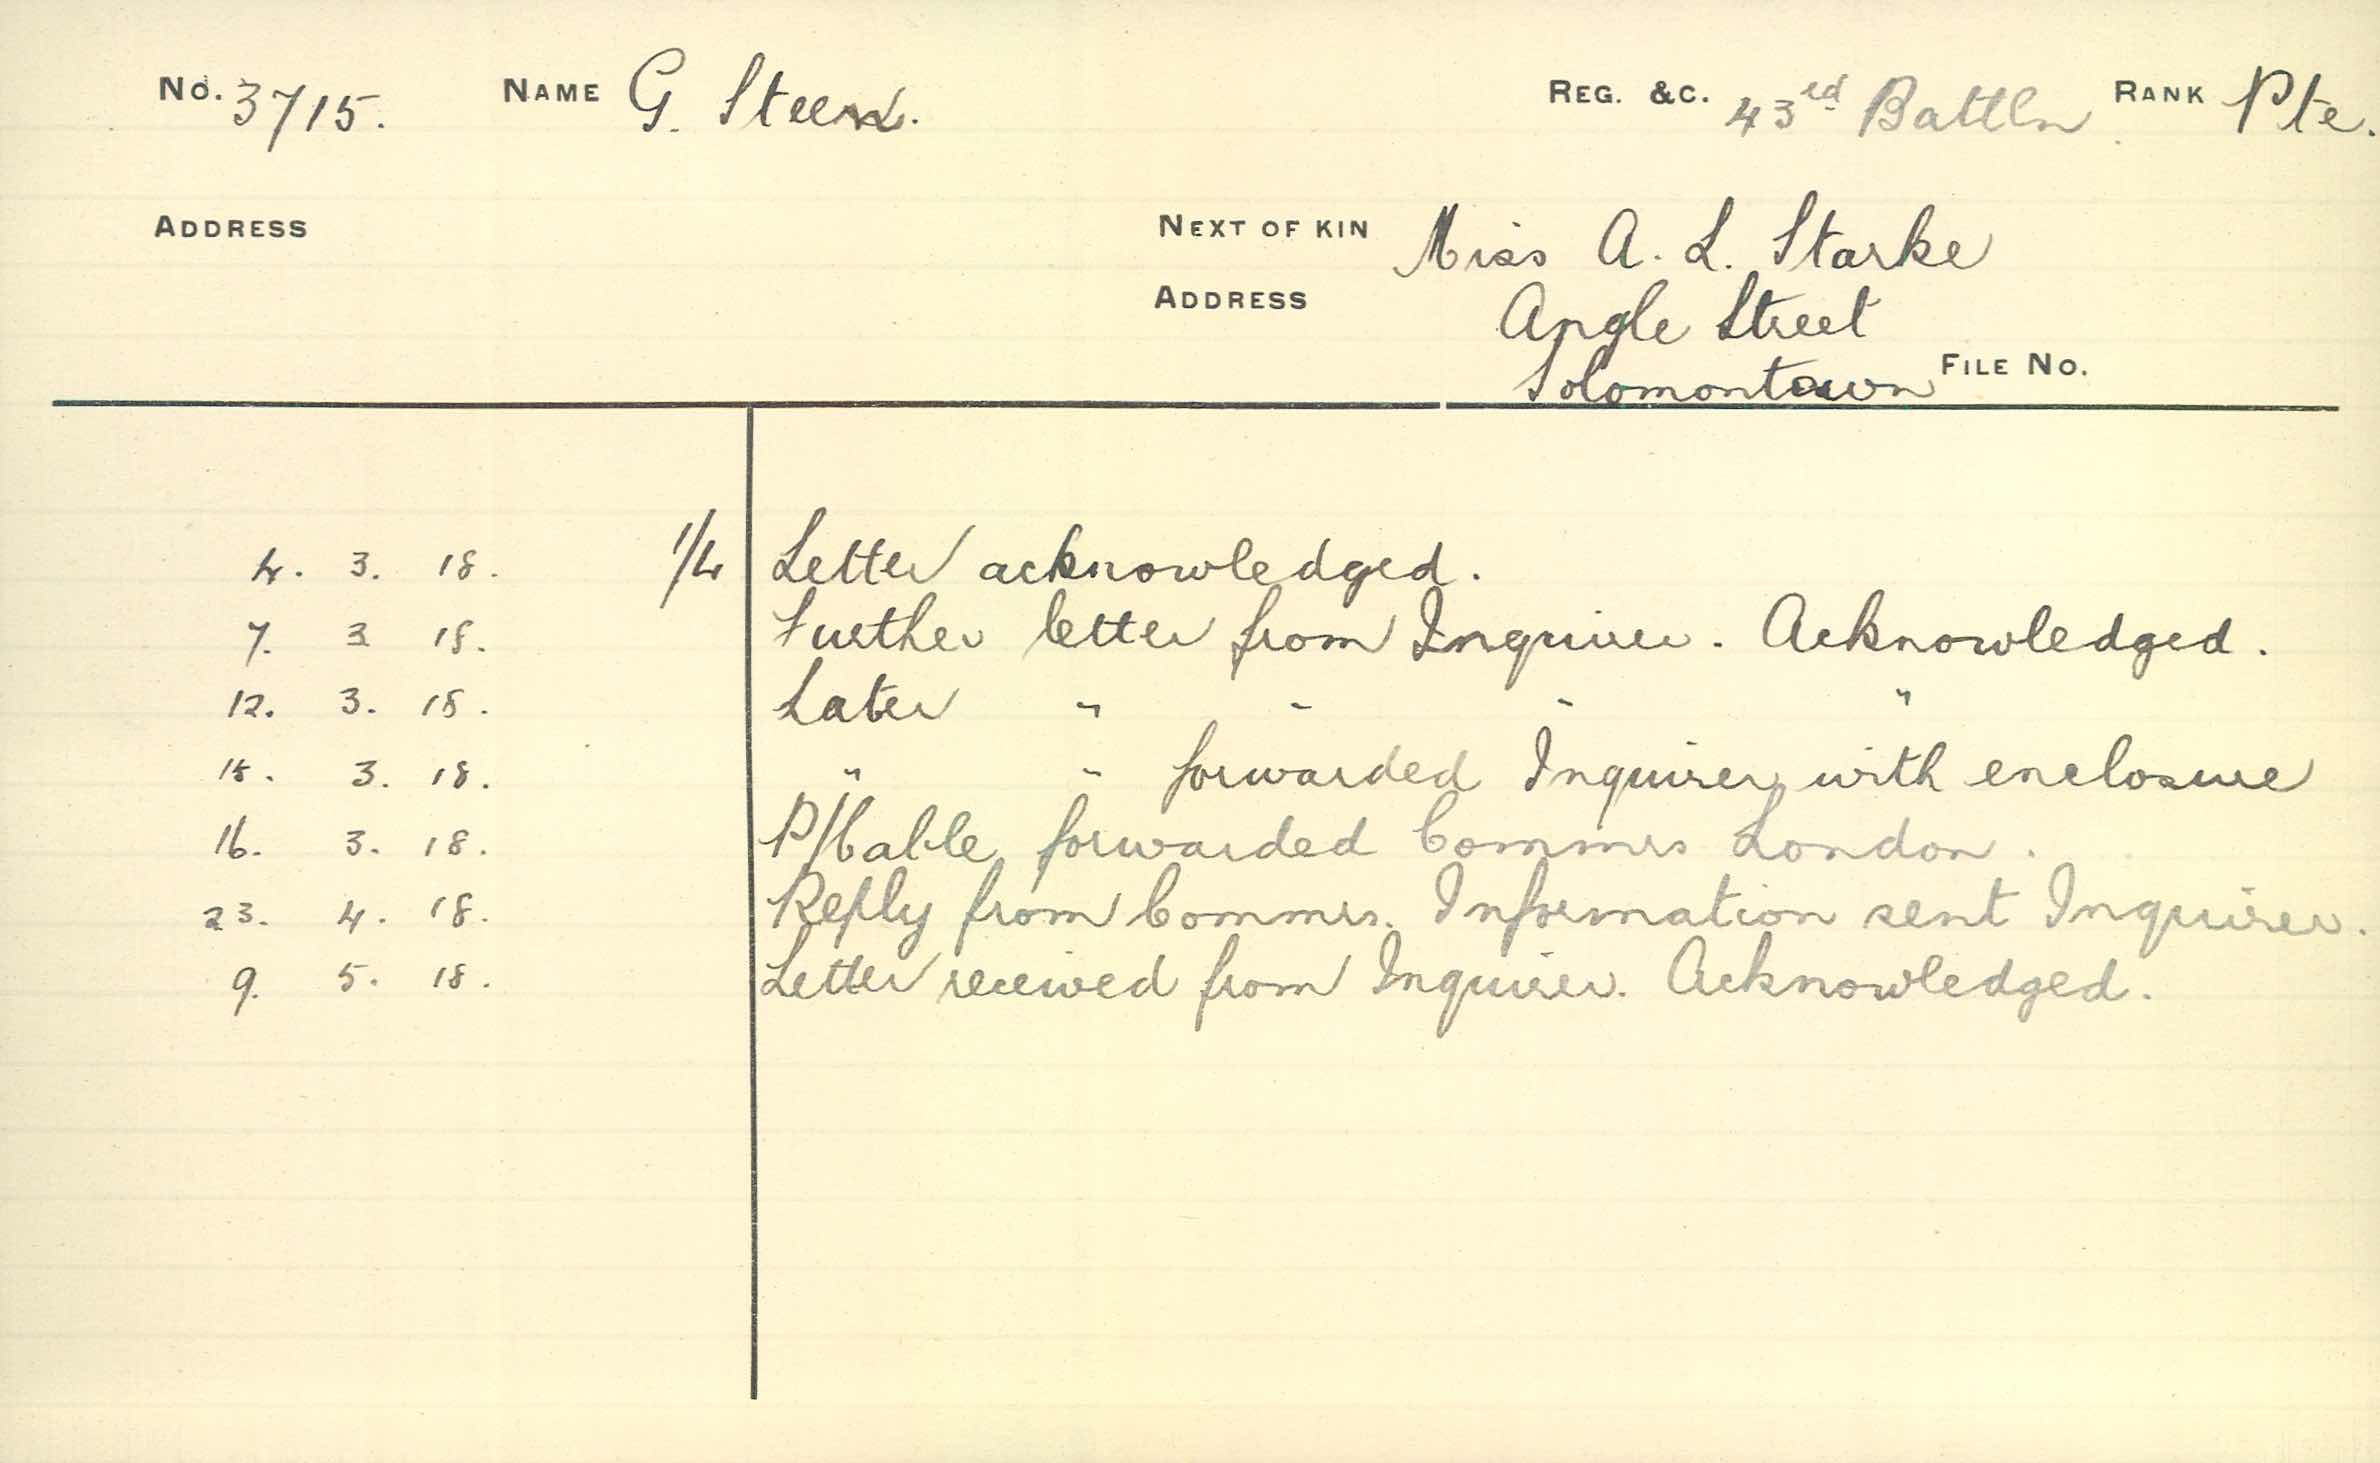 No. 3715. NAME G. Steen. REG. &C. 43rd Battln RANK Pte.
ADDRESS NEXT OF KIN Miss A. L. Starke
ADDRESS Angle Street
Solomontown FILE No.
4. 3. 18. 1/4 Letter acknowledged.
7. 3 18. Further letter from Inquirer. Acknowledged.
12. 3. 18. Later " " " "
15. 3. 18. " " forwarded Inquirer with enclosure
16. 3. 18. P/Cable forwarded Commrs London.
23. 4. 18. Reply from Commrs. Information sent Inquirer.
9. 5. 18. Letter received from Inquirer. Acknowledged.